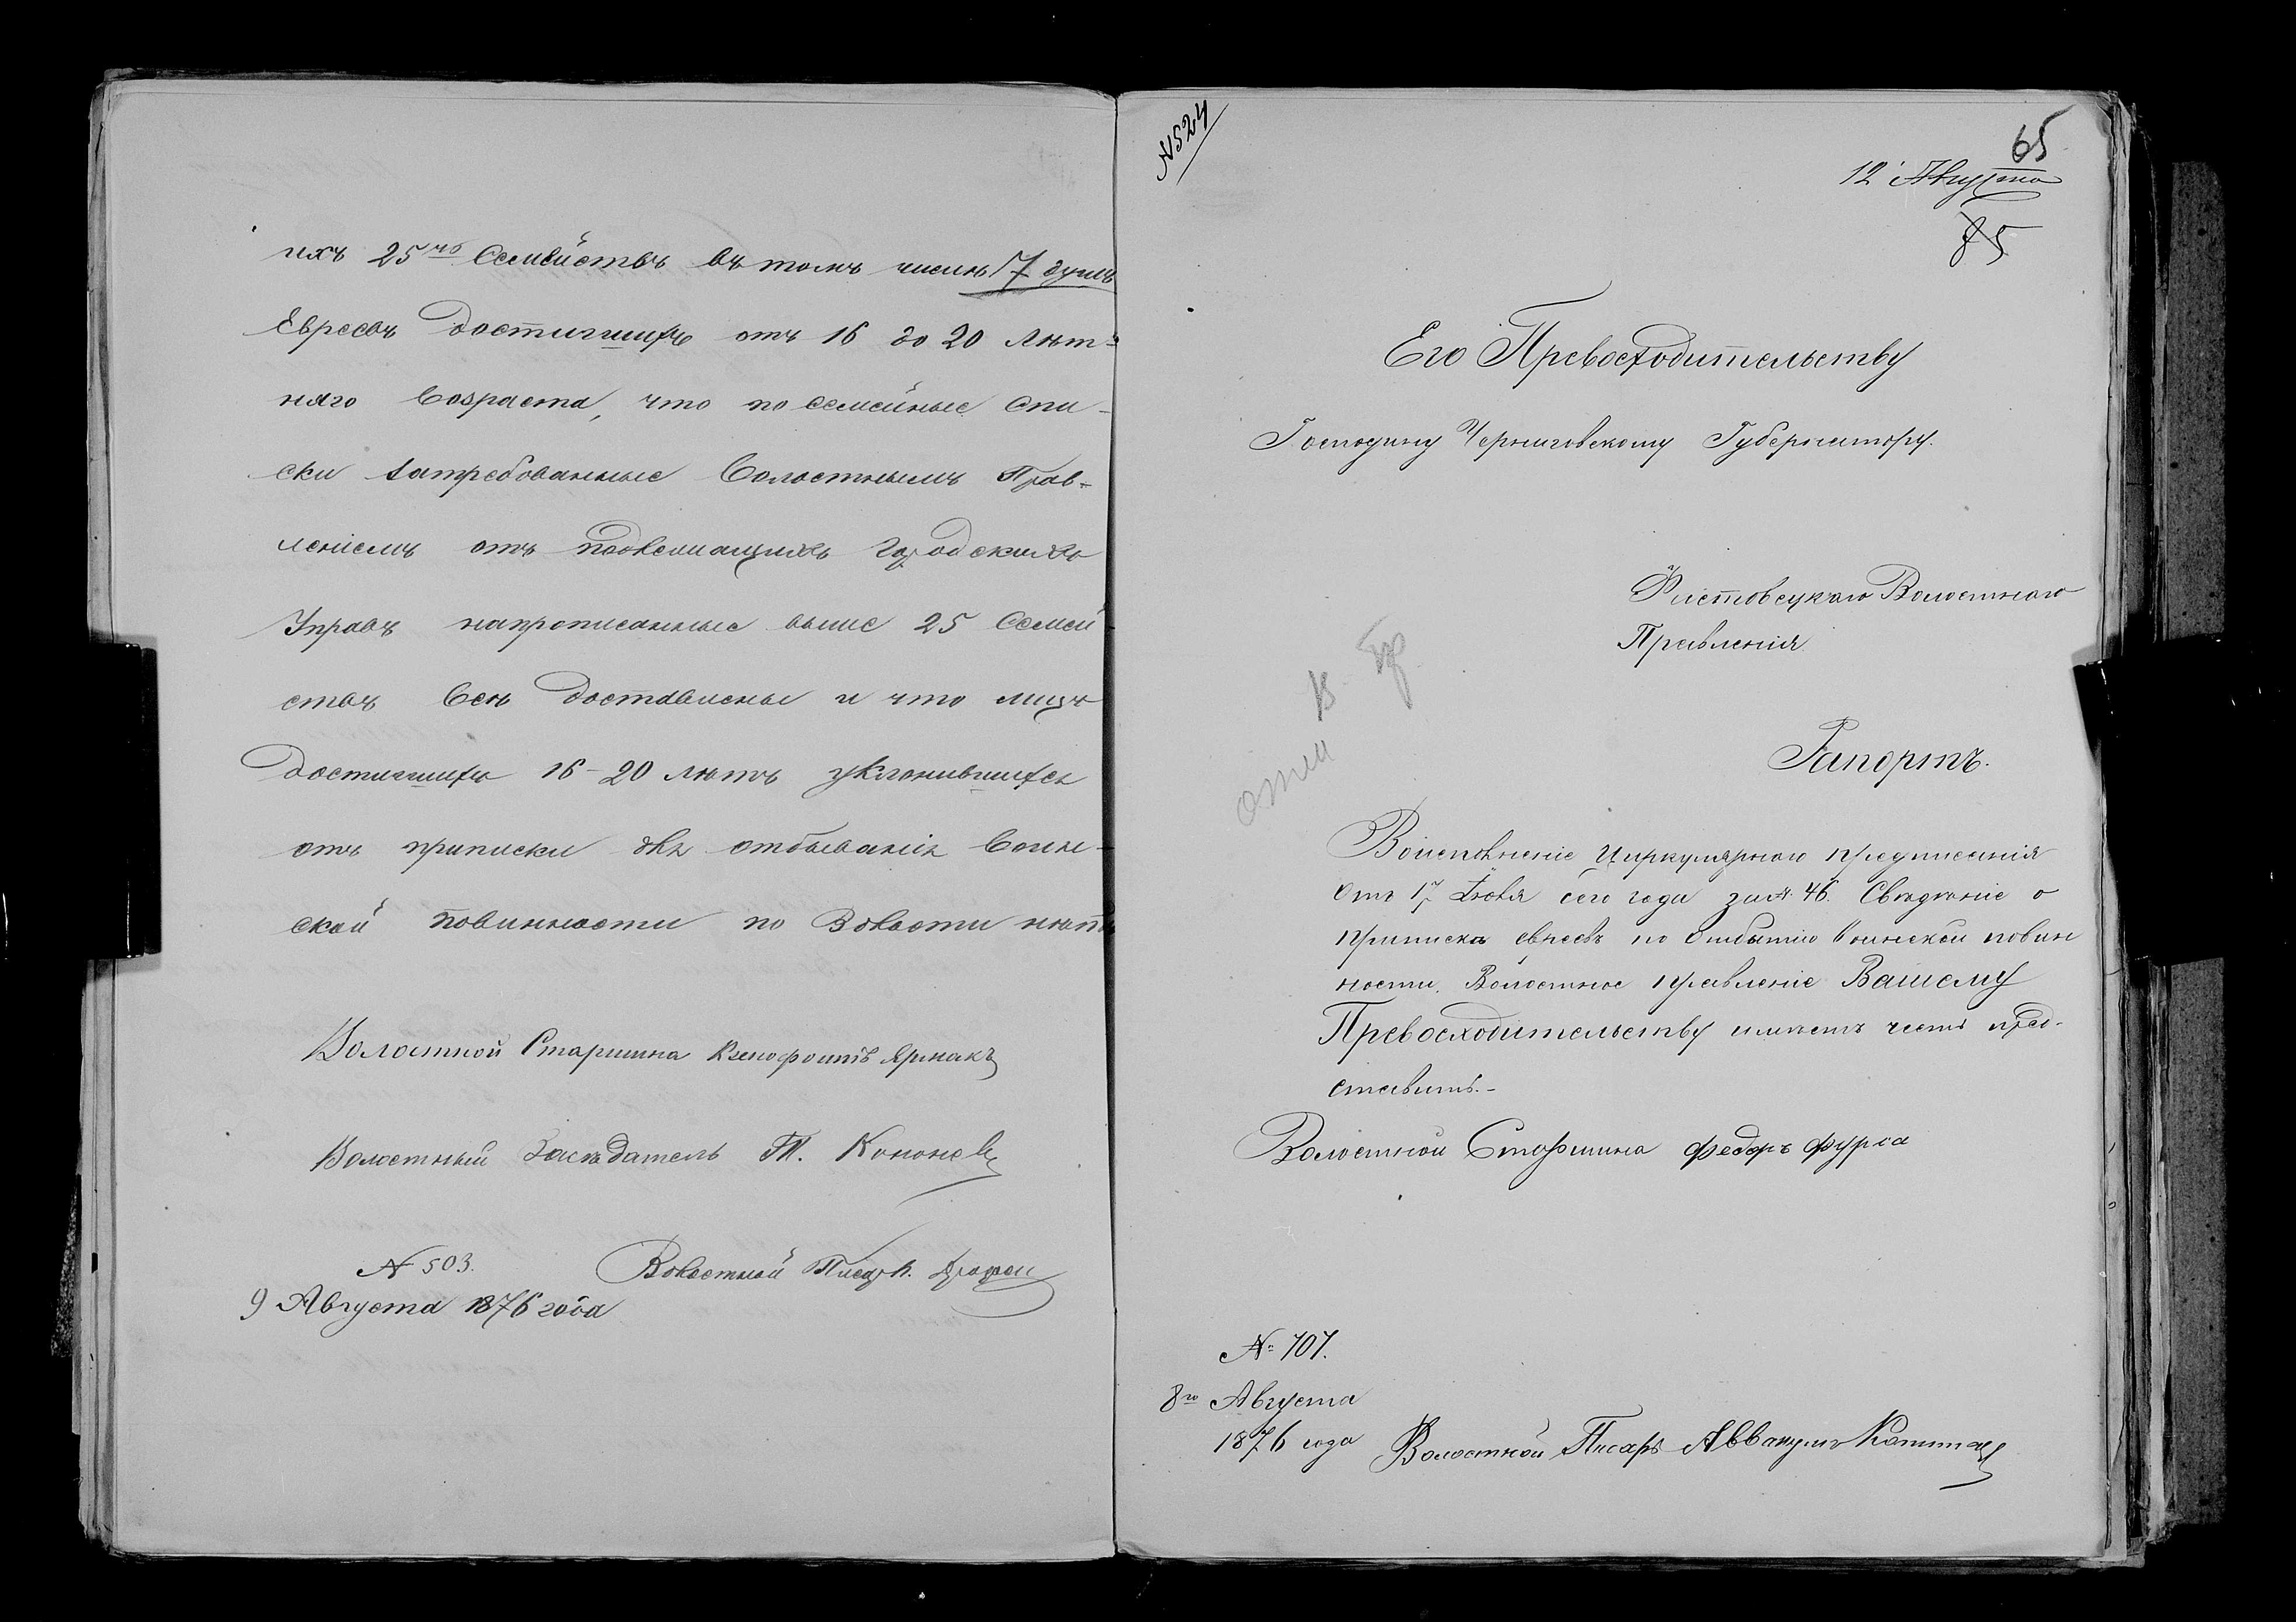 ихъ 25ть Семействъ въ томъ числѣ 17 душъ
Евреевъ достигшихъ отъ 16 до 20 лѣт-
няго возраста, что посемейные спи-
ски затребованные Волостнымъ Прав-
леніемъ отъ подлежащихъ Городскихъ
Управъ напрописанные выше 25 Семей
ствъ всѣ доставлены и что лицъ
достигшихъ 16-20 лѣтъ уклонившихся
отъ приписки для отбыванія воин-
ской повинности по Волости нѣтъ
Волостной Старшина Ксенофонтъ Ярмакъ
Волостный Засѣдатель Т. Кононов
N 503.
Волостной Писарь
9 Августа 1876 года
N 524
65
12 Августа
85
Его Превосходительству
Господину Черниговскому Губернатору.
Волостнаго
Правленія
Рапортъ.
Воисполненіе Циркулярнаго предписанія
Отъ 17 Іюля сего года за № 46. Свѣдѣніе о
приписки евреевъ по отбытію воинской повин
ности. Волостное правленіе Вашему
Превосходительству имѣетъ честь пред-
ставить.-
Волостной Старшина Федоръ Фурса
№ 707.
8го Августа
1876 года
Волостной Писарь Аввакумъ